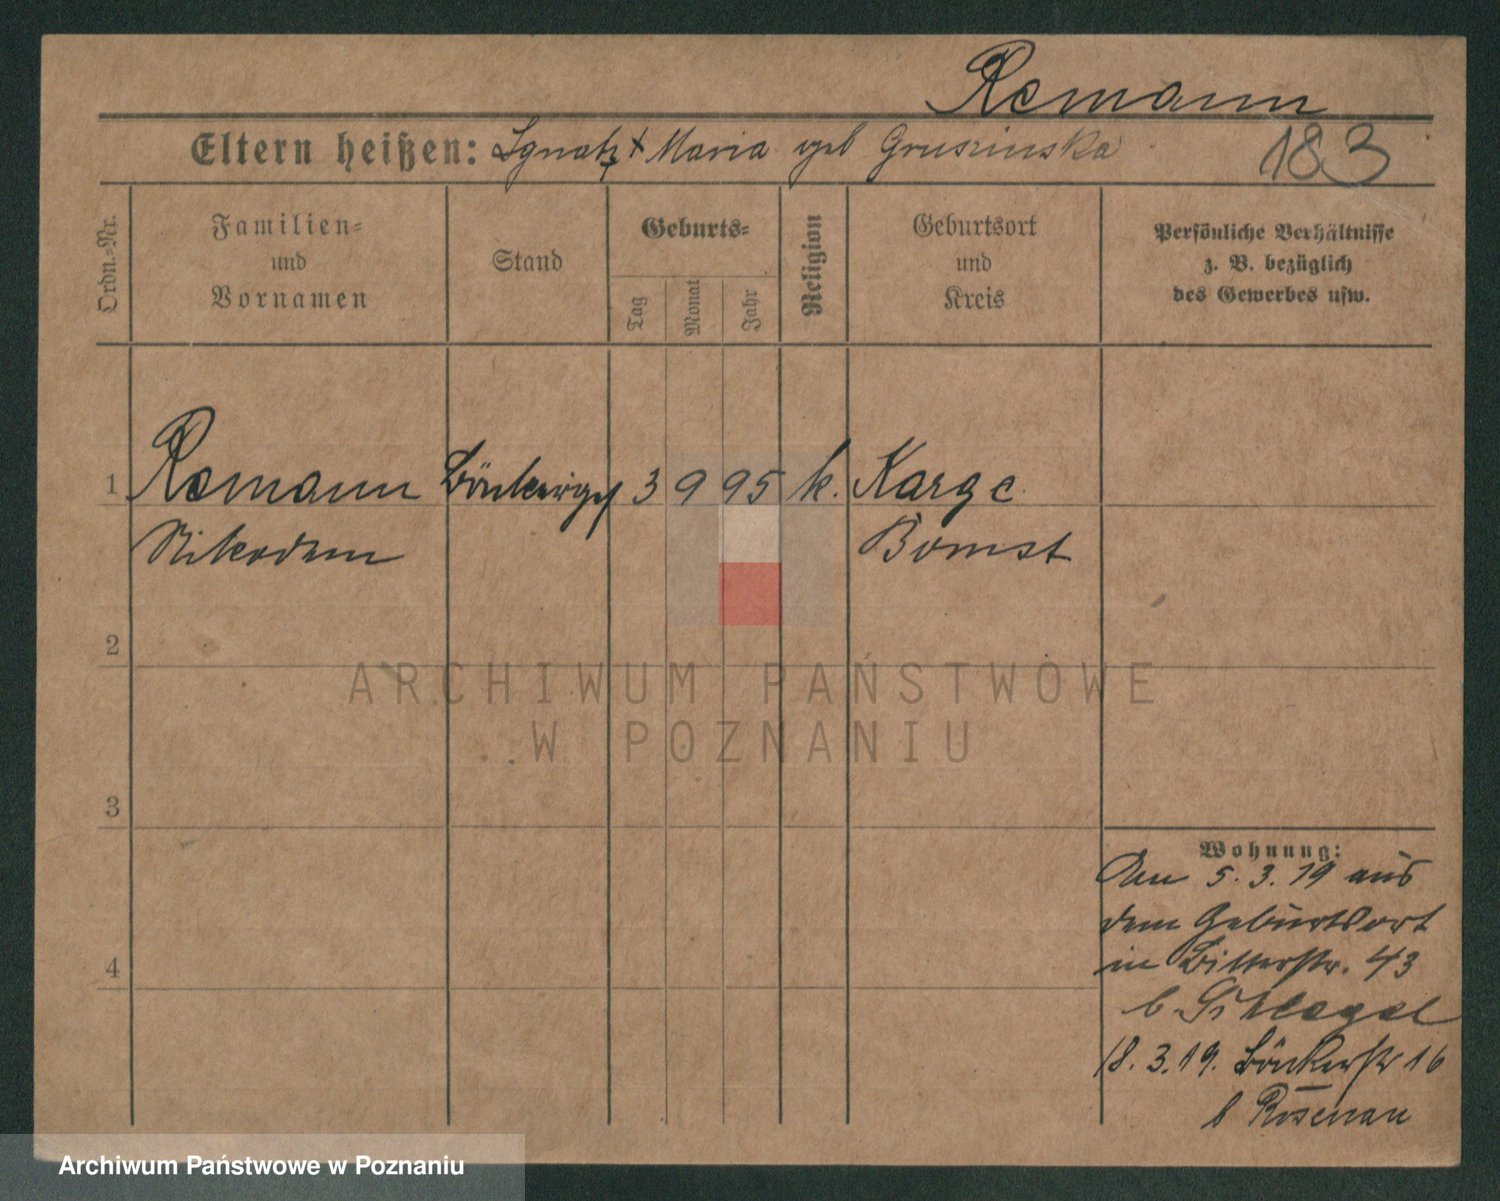 Remann
Eltern heißen: Ignatz + Maria geb Gruszinska
183
Ordn.-Nr.
Familien-
und
Vornamen
Stand
Geburts-
Tag
Monat
Jahr
Religion
Geburtsort
und
Kreis
Persönliche Verhältnisse
z. B. bezüglich
des Gewerbes usw.
1 Remann Bäckerges 3 9 95 k. Karge
Nikodem Bomst
2
3
4
Wohnung:
Am 5. 3. 19 aus
dem Geburtsort
in Bitterstr. 43
b. Schlegel
18. 3. 19. Bäckerstr 16
b Rosenau
ARCHIWUM PAŃSTWOWE
W POZNANIU
Archiwum Państwowe w Poznaniu